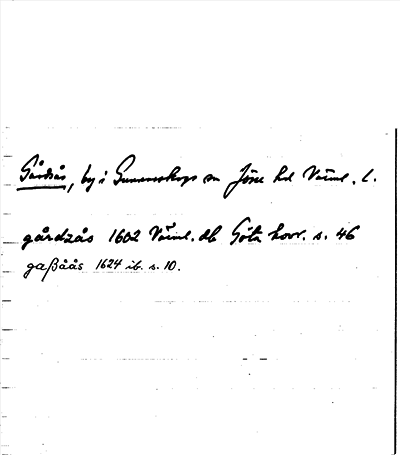 Gårdsås, by i Gunnarskogs sn Jösse hd Värml. l.
gårdzås 1602 Värml. db Göta hovr. s. 46
gaßåås 1624 ib. s. 10.